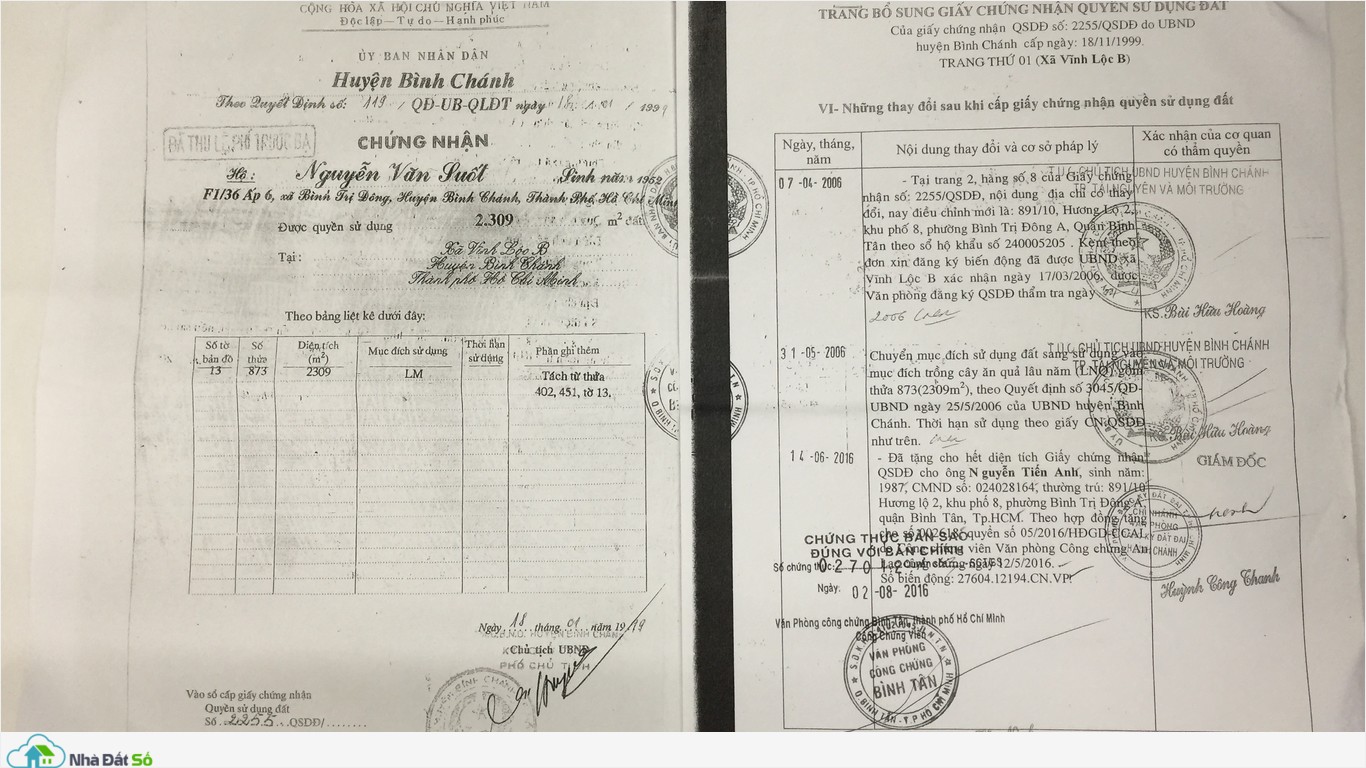 CỘNG HÒA XÃ HỘI CHỦ NGHĨA VIỆT NAM
Độc lập — Tự do — Hạnh phúc
ỦY BAN NHÂN DÂN
Huyện Bình Chánh
Theo Quyết Định số: 119 / QĐ-UB-QLĐT ngày 18 / 01 / 1999
ĐÃ THU LỆ PHÍ TRƯỚC BẠ
CHỨNG NHẬN
Hộ: Nguyễn Văn Suốt Sinh năm 1952
F1/36 Ấp 6, xã Bình Trị Đông, Huyện Bình Chánh, Thành Phố Hồ Chí Minh
Được quyền sử dụng 2.309 m² đất
Tại: Xã Vĩnh Lộc B
Huyện Bình Chánh
Thành phố Hồ Chí Minh
Theo bảng liệt kê dưới đây:
Số tờ bản đồ Số thửa Diện tích (m²) Mục đích sử dụng Thời hạn sử dụng Phần ghi thêm
13 873 2309 LM Tách từ thửa
402, 451, tờ 13.
Ngày 18 tháng 01 năm 1999
Chủ tịch UBND
PHÓ CHỦ TỊCH
Vào sổ cấp giấy chứng nhận
Quyền sử dụng đất
Số 2255 QSDĐ/........
TRANG BỔ SUNG GIẤY CHỨNG NHẬN QUYỀN SỬ DỤNG ĐẤT
Của giấy chứng nhận QSDĐ số: 2255/QSDĐ do UBND
huyện Bình Chánh cấp ngày: 18/11/1999.
TRANG THỨ 01 (Xã Vĩnh Lộc B)
VI- Những thay đổi sau khi cấp giấy chứng nhận quyền sử dụng đất
Ngày, tháng, năm Nội dung thay đổi và cơ sở pháp lý Xác nhận của cơ quan có thẩm quyền
07-04-2006
- Tại trang 2, hàng số 8 của Giấy chứng
nhận số: 2255/QSDĐ, nội dung địa chỉ có thay
đổi, nay điều chỉnh mới là: 891/10, Hương Lộ 2,
khu phố 8, phường Bình Trị Đông A, Quận Bình
Tân theo sổ hộ khẩu số 240005205 . Kèm theo
đơn xin đăng ký biến động đã được UBND xã
Vĩnh Lộc B xác nhận ngày 17/03/2006, được
Văn phòng đăng ký QSDĐ thẩm tra ngày
2006
T.U.Q CHỦ TỊCH UBND HUYỆN BÌNH CHÁNH
TP. TÀI NGUYÊN VÀ MÔI TRƯỜNG
KS. Bùi Hữu Hoàng
31-05-2006
Chuyển mục đích sử dụng đất sang sử dụng vào
mục đích trồng cây ăn quả lâu năm (LNQ) gồm
thửa 873(2309m²), theo Quyết định số 3045/QĐ-
UBND ngày 25/5/2006 của UBND huyện Bình
Chánh. Thời hạn sử dụng theo giấy CN.QSDĐ
như trên.
T.U.Q CHỦ TỊCH UBND HUYỆN BÌNH CHÁNH
TP. TÀI NGUYÊN VÀ MÔI TRƯỜNG
Bùi Hữu Hoàng
14-06-2016
- Đã tặng cho hết diện tích Giấy chứng nhận
QSDĐ cho ông Nguyễn Tiến Anh, sinh năm:
1987, CMND số: 024028164, thường trú: 891/10
Hương lộ 2, khu phố 8, phường Bình Trị Đông A,
quận Bình Tân, Tp.HCM. Theo hợp đồng tặng
cho số 002618, quyển số 05/2016/HĐGD-CCAL
do Công chứng viên Văn phòng Công chứng An
Lạc chứng ngày 12/5/2016.
Số biến động: 27604.12194.CN.VP.
GIÁM ĐỐC
Huỳnh Công Thanh
CHỨNG THỰC BẢN SAO
ĐÚNG VỚI BẢN CHÍNH
Số chứng thực:
Ngày: 02-08-2016
Văn Phòng công chứng Bình Tân, thành phố Hồ Chí Minh
Công Chứng Viên
VĂN PHÒNG
CÔNG CHỨNG
BÌNH TÂN
Q.BÌNH TÂN-T.P HỒ CHÍ MINH
Nhà Đất Số